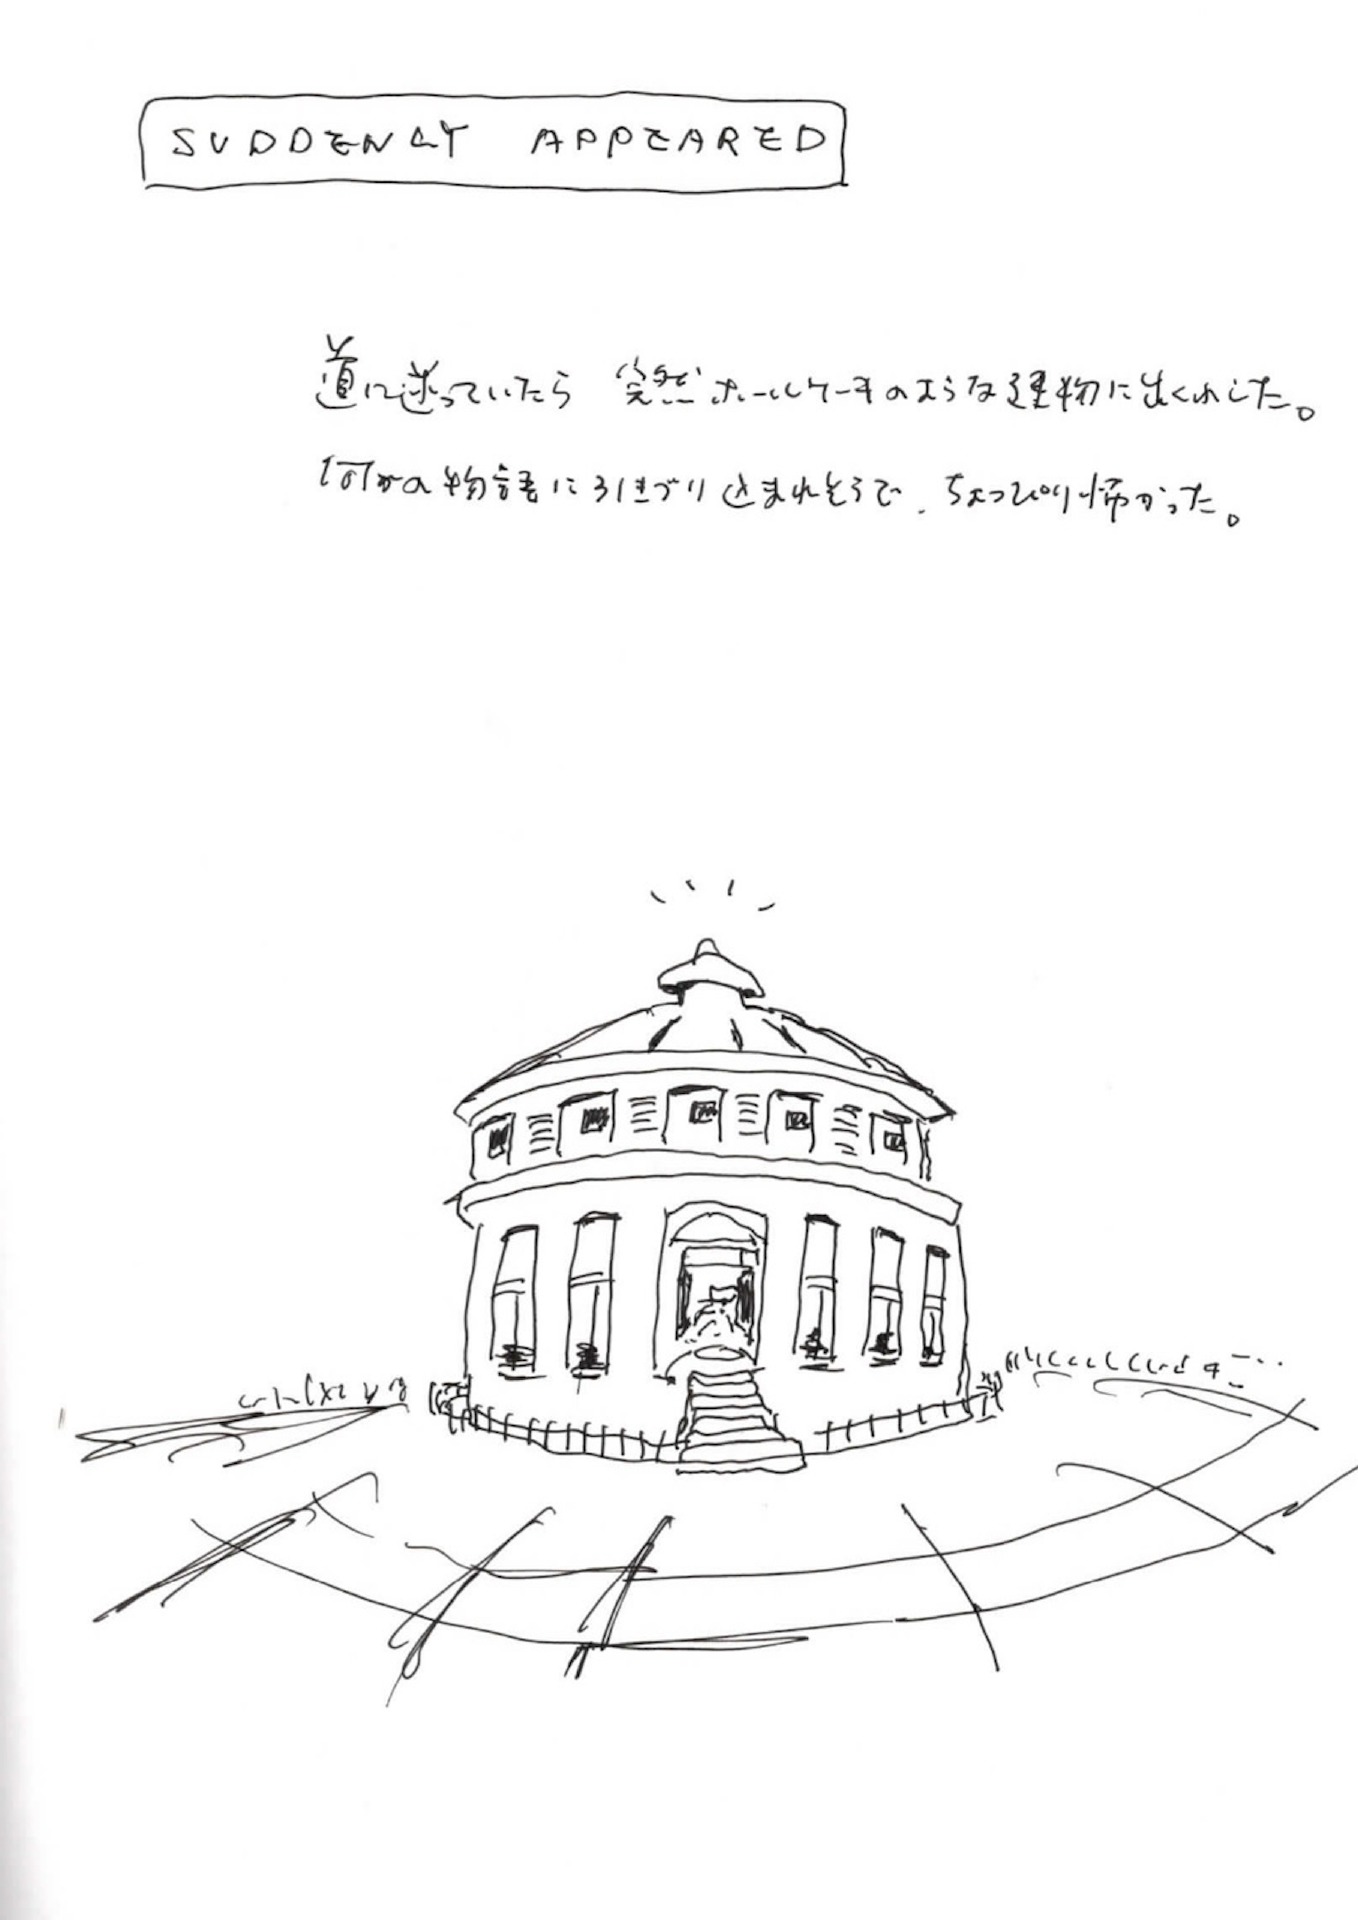 SUDDENLY APPEARED
道に迷っていたら 突然ホールケーキのような建物に出くわした。
何かの物語に引きづり込まれそうで、ちょっぴり怖かった。